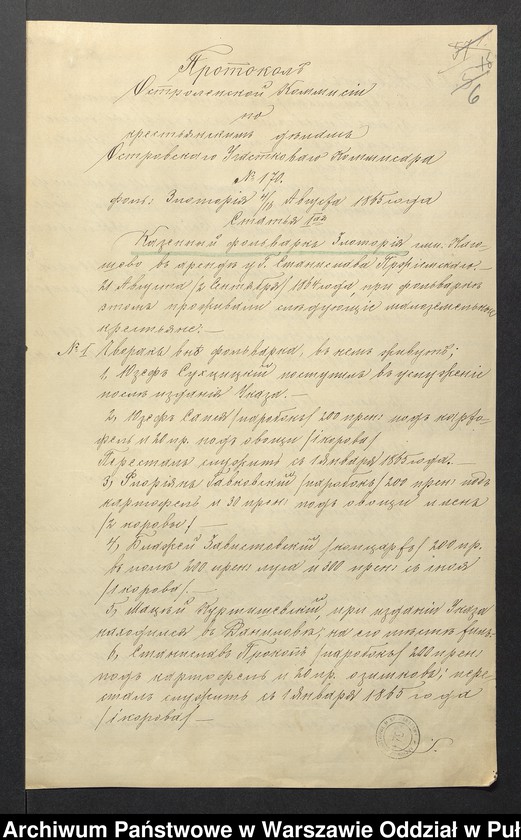 Протоколъ
Остроленской Коммисіи
по
крестьянскимъ дѣламъ
Островскаго Участковаго Коммисара
№ 170.
фоль: Злоторія 4/16 Августа 1865 года
Статья 1ая
Казенный фольваркъ Злоторія гмины
въ арендѣ у Г. Станислава
21 Августа /2 Сентября/ 1864 года, при фольваркѣ
этомъ проживали слѣдующіе малоземельные
крестьяне:
№ 1 Дворакъ внѣ фольварка, въ немъ живутъ;
1, Юзефъ Сухцицкій поступилъ въ услуженіе
послѣ изданія Указа.
2, Юзефъ Сапѣя /паробокъ/ 200 прен: подъ карто-
фель и 20 пр. подъ овощи /1 корова/
Пересталъ служить съ 1 Января 1865 года.
3, Флоріянъ Гавковскій /паробокъ/ 200 прен: подъ
картофель и 30 прен: подъ овощи и ленъ
/2 коровы/
4, Блажей Завистовскій 200 пр.
въ полѣ 200 прен: луга и 300 прен: съ
/1 корова/
5, Мацѣй при изданіи Указа
находился въ Даниловѣ, на его мѣстѣ былъ
6, Станиславъ /паробокъ/ 200 прен:
подъ картофель и 20 пр. озимковъ; пере-
сталъ служить съ 1 Января 1865 года
/1 корова/
Archiwum Państwowe w Warszawie Oddział w Puł